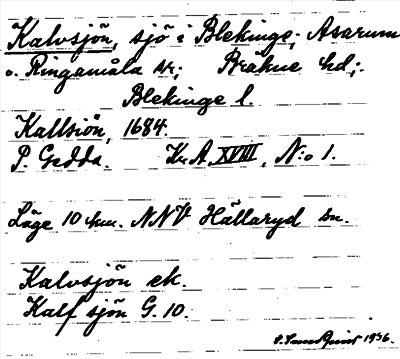 Kalvsjön, sjö i Blekinge; Asarum
o. Ringamåla sr; Bräkne hd;
Blekinge l.
Kallsiön, 1684.
P. Gedda. Kr.A. XVIII, N:o 1.
Läge 10 km. NNV Hällaryd sn.
Kalvsjön ek.
Kalf sjön G. 10.
1936.